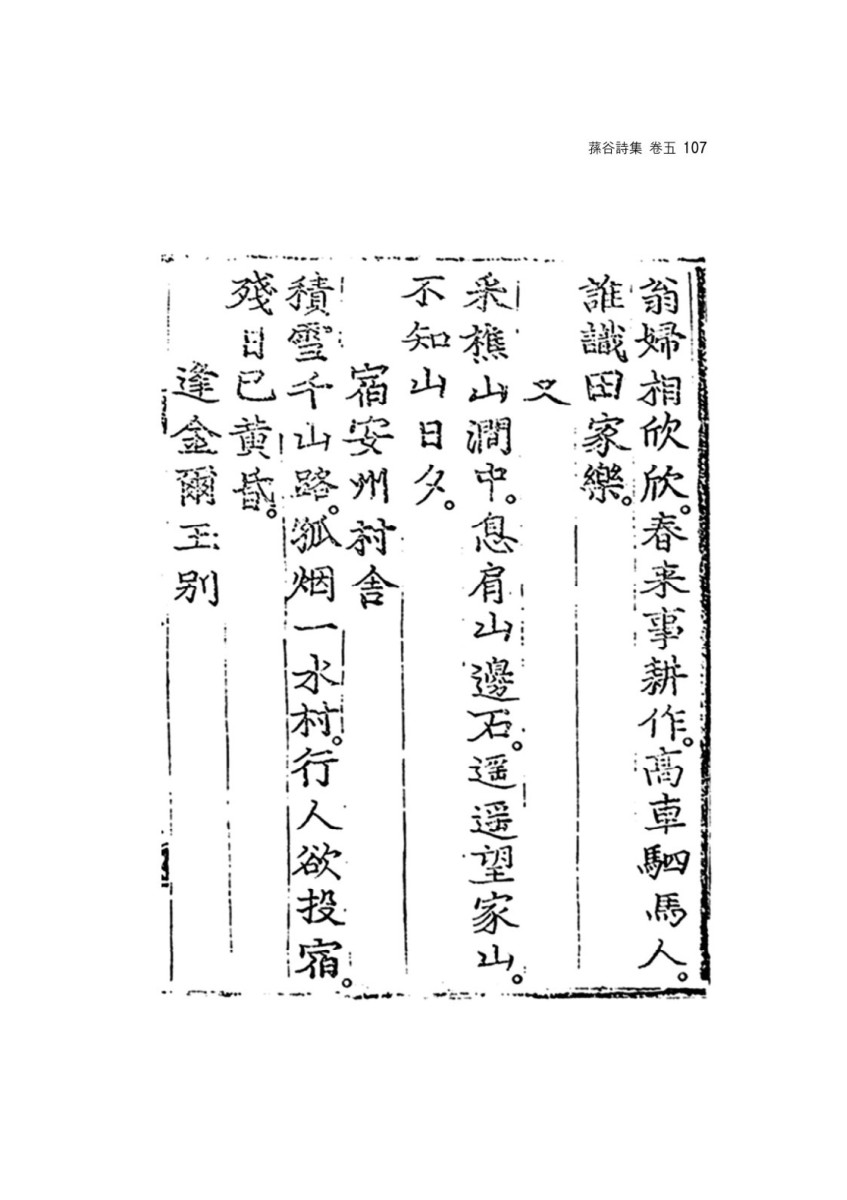 蓀谷詩集 卷五 107
翁婦相欣欣。春来事耕作。高車駟馬人。
誰識田家樂。
又
采樵山澗中。息肩山邊石。遥遥望家山。
不知山日夕。
宿安州村舍
積雪千山路。孤烟一水村。行人欲投宿。
殘日已黄昏。
逢金爾玉别